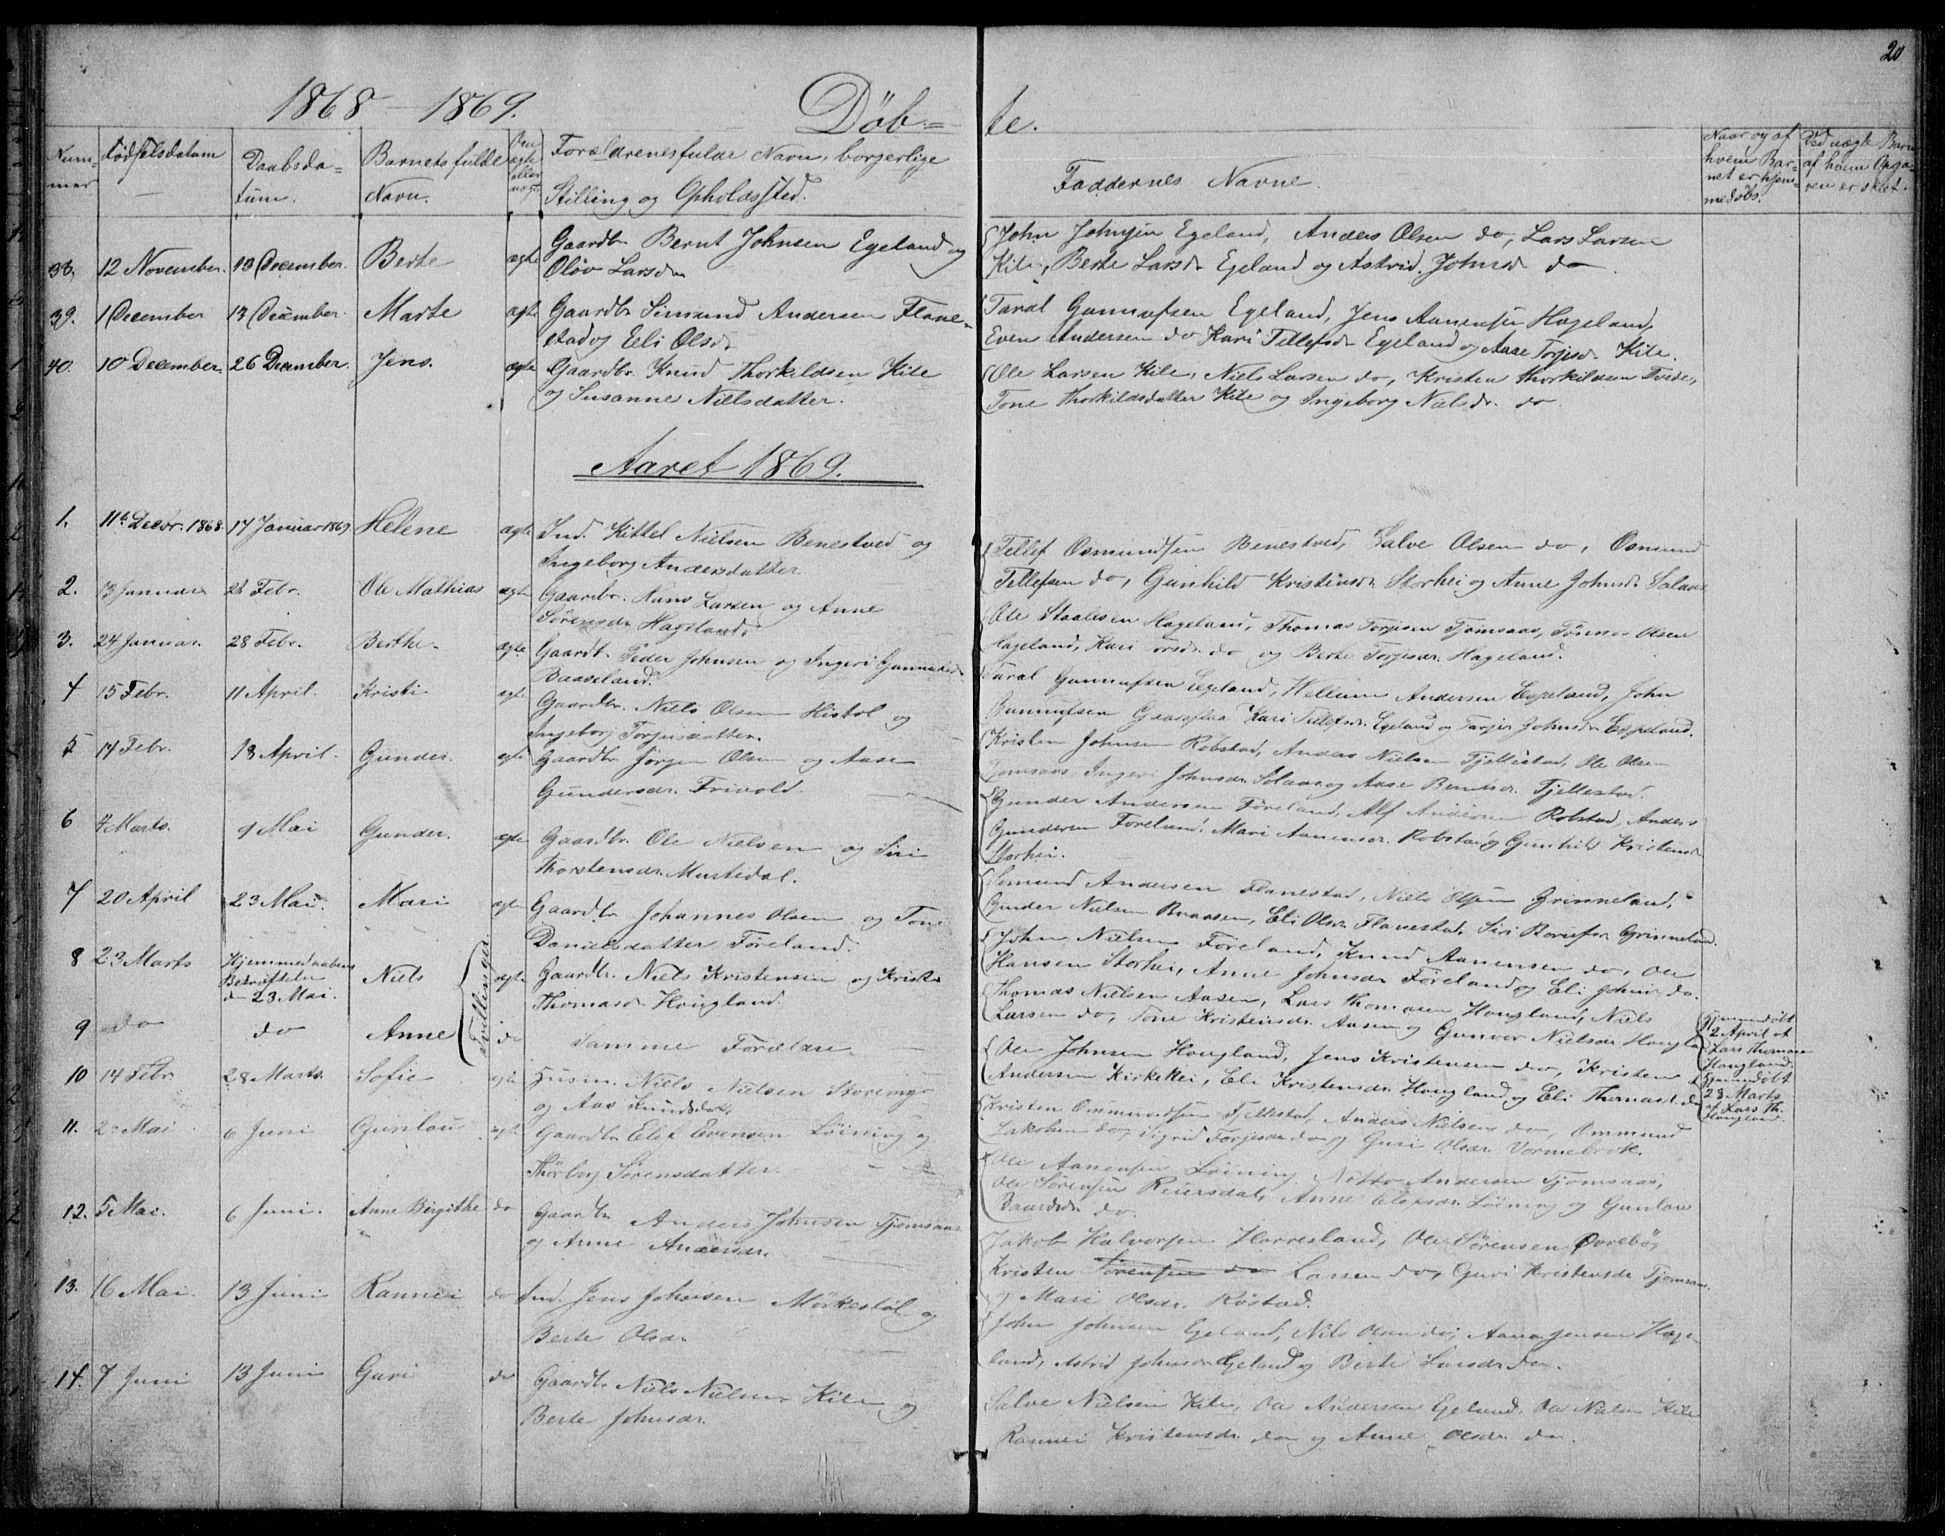 20
1868 - 1869.
Døb= te.
Num-
mer
Fødselsdatum
Daabsda-
tum.
Barnets fulde
Navn.
Om
ægte
eller
uægte
Forældrenes fulde Navn, borgerlige
Stilling og Opholdssted.
Faddernes Navne.
Naar og af
hvem Bar-
net er hjem-
medøbt.
Ved uægte Barn
af hvem Opga-
ven er sket.
38. 12 November. 13 December. Berte ægte Gaardbr Bernt Johnsen Egeland og
Oløv Larsdr
John Johnsen Egeland, Anders Olsen do, Lars Larsen
Kile, Berte Larsdr Egeland og Astrid Johnsdr do.
39. 1 December 13 December. Marte ægte Gaardbr Simund Andersen Flane-
stad og Eli Olsdr
Taral Gunnufsen Egeland, Jens Aanensen Hageland,
Even Andersen do Kari Tellefsdr Egeland og Aase Torjesdr Kile.
40. 10 December. 26 December. Jens. ægte Gaardbr. Knud Thorkildsen Kile
og Susanne Nielsdatter.
Ole Larsen Kile, Niels Larsen do, Kristen Thorkildsen Tvede,
Tone Thorkildsdatter Kile og Ingeborg Nielsdr. do
Aaret 1869.
1. 11te Decbr. 1868. 17 Januar 1869 Helene ægte Ind. Kittel Nielsen Benestved og
Ingeborg Andersdatter
Tellef Osmundsen Benestved, Salve Olsen do, Osmund
Tellefsen do, Gunhild Kristensdr Storhei og Anne Johnsdr Solaas
2. 13 Januar 28 Febr. Ole Mathias ægte Gaardbr. Hans Larsen og Anne
Sørensdr Hageland.
Ole Staalesen Hageland, Thomas Torjesen Tjomsaas, Tønnes Olsen
Hageland, Kari do og Berte Torjesdr. Hageland.
3. 24 Januar. 28 Febr. Berthe. ægte Gaardb. Peder Johnsen og Ingeri
Taral Gunnufsen Egeland, Willum Andersen Espeland, John
Gunnufsen Kari Tellefsdr. Egeland og Johnsdr Espeland.
4 15 Febr. 11 April. Kristi ægte Gaardbr. Niels Olsen Histøl og
Ingeborg Torjusdatter.
Kristen Johnsen Robstad, Anders Nielsen Fjellestad, Ole Olsen
Tjomsaas, Ingeri Johnsdr Solaas og Aase Berntsdr. Fjellestad.
5 14 Febr. 18 April. Gunder. ægte Gaardbr Jørgen Olsen og Aase
Gundersdr. Frivold.
Gunder Andersen Føreland, Alf Andersen Robstad, Anders
Gundersen Føreland. Mari Aanensdr. Robstad og Gunhild Kristensdr
Storhei.
6 4 Marts. 9 Mai Gunder. ægte Gaardbr. Ole Nielsen og Siri
Thorstensdr. Mustedal.
Simund Andersen Flanestad, Niels Olsen Grinneland,
Gunder Nielsen Eli Olsdr Flanestad, Siri Grinneland.
7 20 April 23 Mai. Mari ægte Gaardbr Johannes Olsen og Tone
Danielsdatter Føreland.
John Nielsen Føreland, Knud Aanensen do, Ole
Hansen Storhei, Anne Johnsdr Føreland og Eli Johnsdr do.
8 23 Marts Hjemmedaaben
Bekræftelse
den 23 Mai. Niels Tvillinger. ægte Gaardbr. Niels Kristensen og Kristi
Thomasdr Hougland
Thomas Nielsen Aasen, Lars Thomasen Hougland, Niels
Larsen do, Tone Kristensdr. Aasen og Gunvor Nielsdr Hougla
9 do do Anne do Samme Forældre.
Ole Johnsen Hougland, Jens Kristensen do, Kristen
Andersen Kirkekei, Eli Kristensdr Hougland og Eli Thomasd. do
Hjemmedøbt
2 April af
Lars Thomasen
Hougland.
Hjemmedøbt
28 Marts
af Lars Th.
Hougland.
10 14 Febr 28 Marts. Sofie ægte Husm. Niels Nielsen Storemyr
og Aas Knudsdatr.
Kristen Ommundsen Fjellestad, Anders Nielsen do, Ommund
Jakobsen do, Sigrid Torjesdr do og Guri Olsdr.
11. 2 Mai 6 Juni Gunlou ægte Gaardbr Elef Evensen Løining og
Thørborg Sørensdatter.
Ole Aanensen Løining, Notto Andersen Tjomsaas,
Ole Sørensen Reiersdal, Anne Elefsdr. Løining og Gunlou
Baardsdr do.
12. 5 Mai. 6 Juni. Anne Birgithe do Gaardbr Anders Johnsen Tjomsaas
og Anne Andersdr.
Jakob Halvorsen Horresland, Ole Sørensen Øvrebø,
Kristen Sørensen do Larsen do, Guri Kristensdr. Tjomsaas
og Mari Olsdr. Røstad.
13. 16 Mai. 13 Juni Rannei do Ind. Jens Johnsen Mørkestøl og
Berte Olsdr.
John Johnsen Egeland, Nils Olsen do, Aanen Jensen Hage-
land, Astrid Johnsdr Egeland og Berte Larsdr do.
14. 7 Juni 13 Juni Guri do Gaardbr Niels Nielsen Kile og
Berte Johnsdr.
Salve Nielsen Kile, Ole Andersen Egeland, Ole Nielsen Kile
Rannei Kristensdr. do og Anne Olsdr. do.